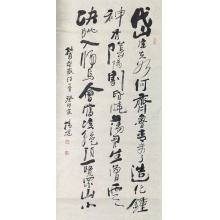 岱宗夫如何齊魯青未了造化鍾
神秀陰陽割昏曉蕩胸生曾雲
決眦入歸鳥會當凌絕頂一覽眾山小